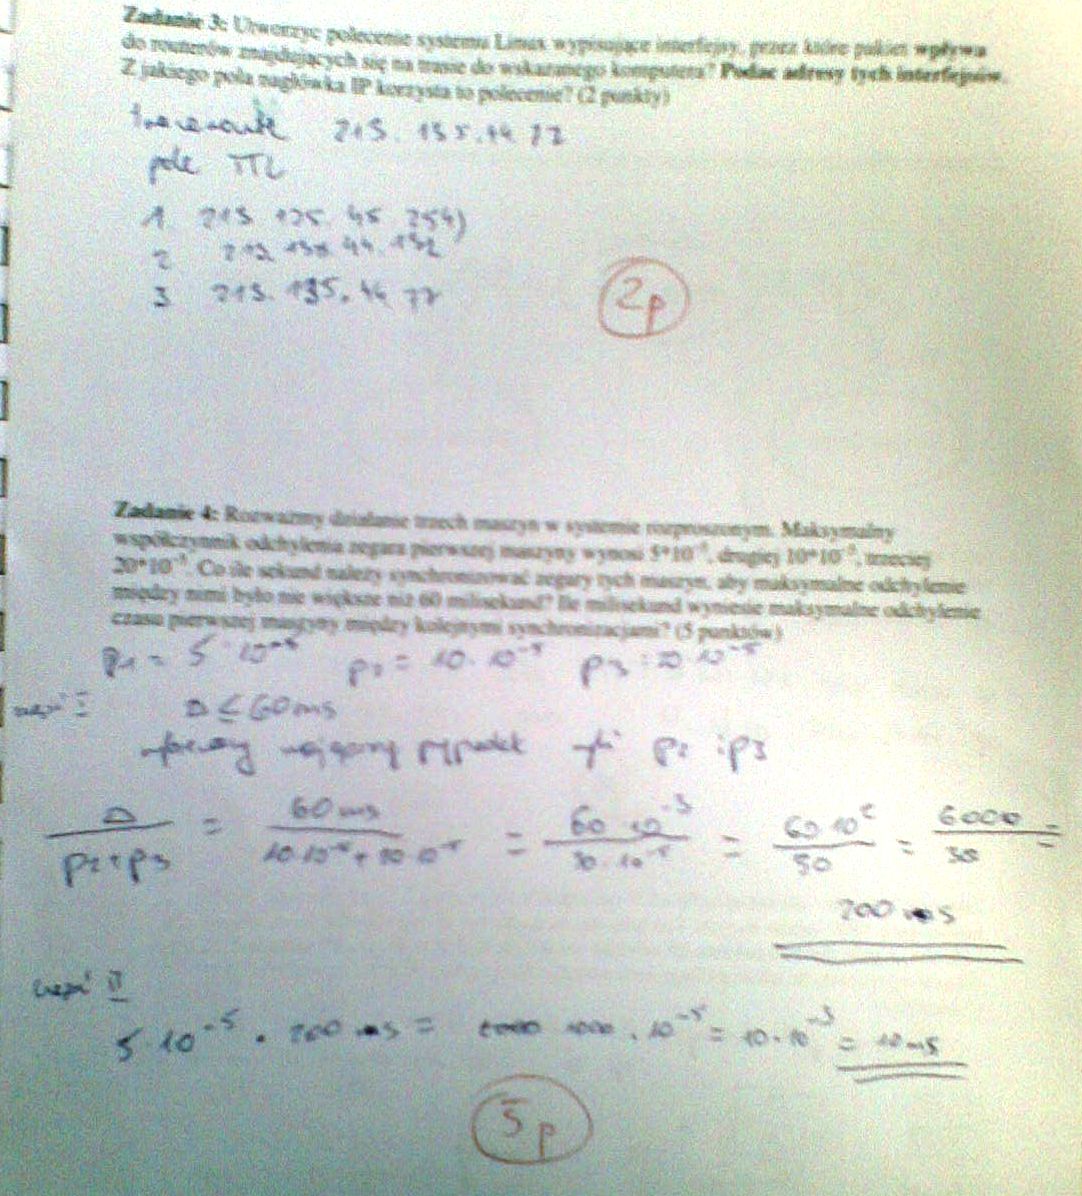 Zadanie 3: Utworzyć polecenie systemu Linux wypisujące interfejsy, przez które pakiet wpływa
do routerów znajdujących się na trasie do wskazanego komputera? Podać adresy tych interfejsów.
Z jakiego pola nagłówka IP korzysta to polecenie? (2 punkty)
traceroute 213.135.44.77
pole TTL
1. 213.135.45.254)
2 213.135.44.132
3 213.135.44 77
2p
Zadanie 4: Rozważmy działanie trzech maszyn w systemie rozproszonym. Maksymalny
współczynnik odchylenia zegara pierwszej maszyny wynosi 5*10⁻⁵, drugiej 10*10⁻⁵, trzeciej
20*10⁻⁵. Co ile sekund należy synchronizować zegary tych maszyn, aby maksymalne odchylenie
między nimi było nie większe niż 60 milisekund? Ile milisekund wyniesie maksymalne odchylenie
czasu pierwszej maszyny między kolejnymi synchronizacjami? (5 punktów)
p₁ = 5·10⁻⁵ p₂ = 10·10⁻⁵ p₃ = 20·10⁻⁵
część I Δ ≤ 60ms
najgorszy przypadek p₂ i p₃
Δ/(p₂+p₃) = 60ms/(10·10⁻⁵+20·10⁻⁵) = 60·10⁻³/(30·10⁻⁵) = 60·10²/30 = 6000/30 =
200 s
część II
5·10⁻⁵ · 200 s = 1000·10⁻⁵ = 10·10⁻³ = 10ms
5p